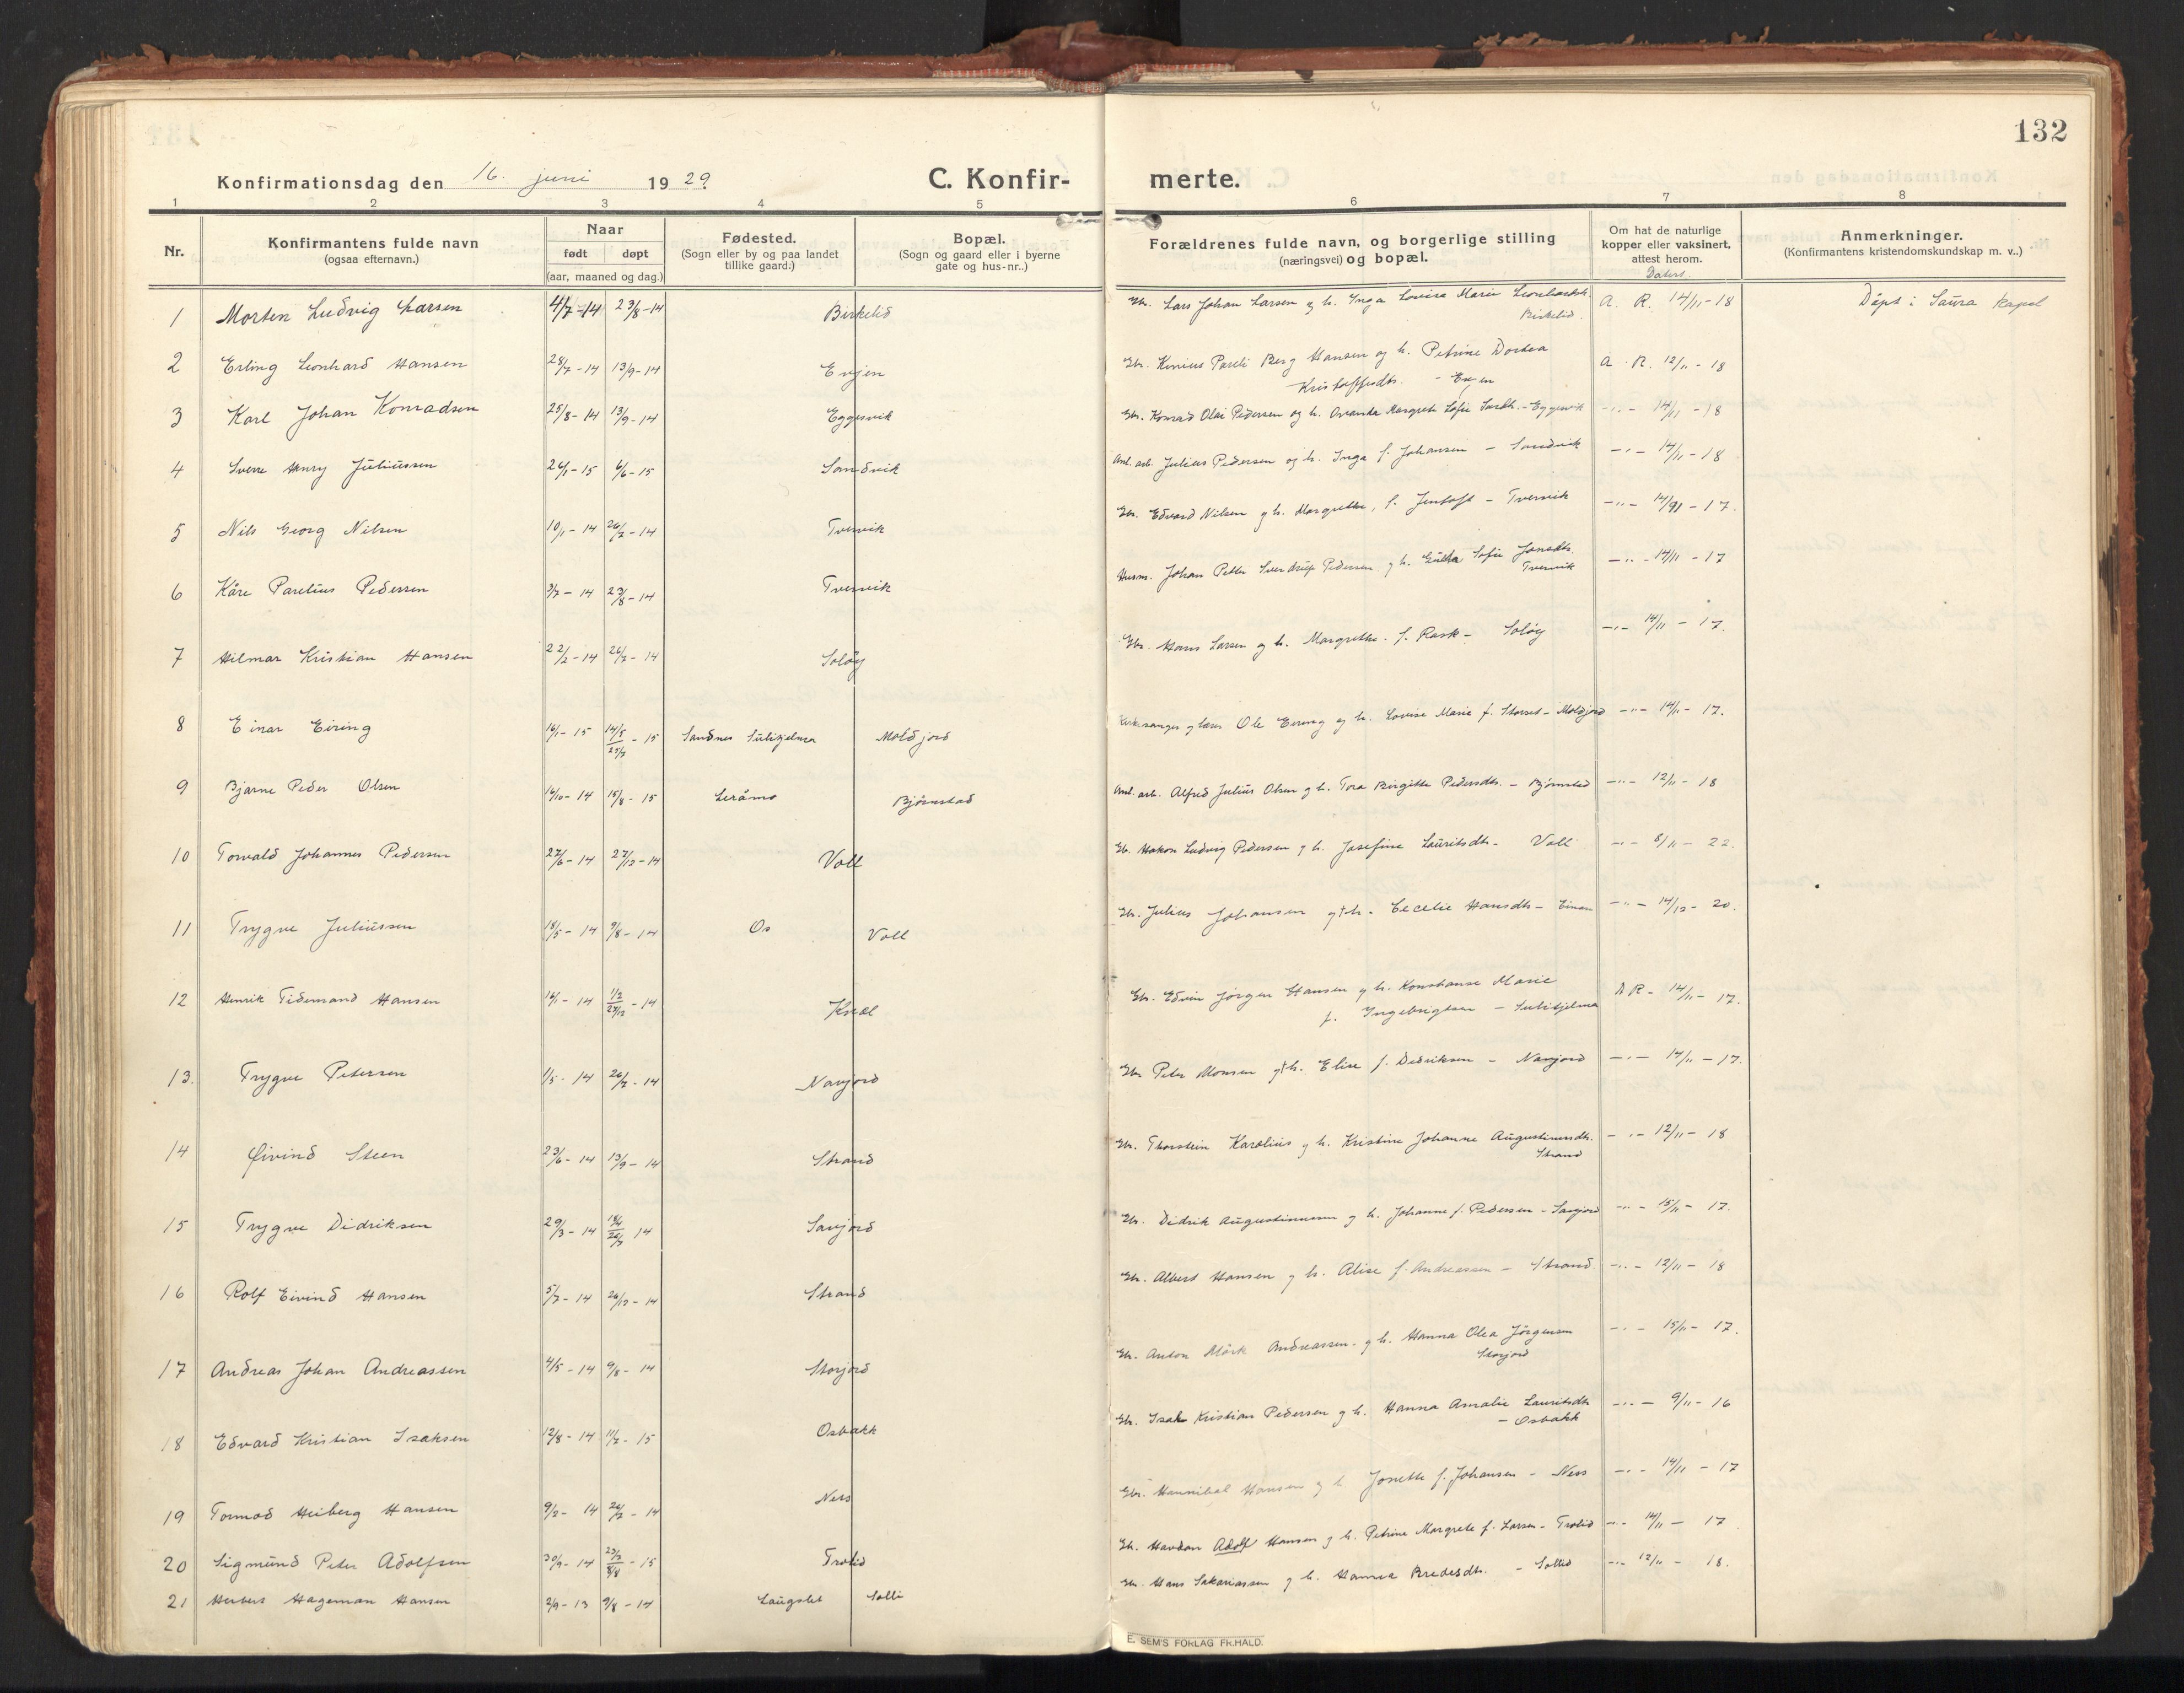 132
Konfirmationsdag den 16. juni 1929. C. Konfir- merte.
1 2 3 4 5 6 7 8
Nr. Konfirmantens fulde navn (ogsaa efternavn.) Naar født døpt (aar, maaned og dag.) Fødested. (Sogn eller by og paa landet tillike gaard.) Bopæl. (Sogn og gaard eller i byerne gate og hus-nr..) Forældrenes fulde navn, og borgerlige stilling (næringsvei) og bopæl. Om hat de naturlige kopper eller vaksinert, attest herom. Datert. Anmerkninger. (Konfirmantens kristendomskundskap m. v..)
1 Morten Ludvig Larsen 4/7-14 23/8-14 Birkelid Gbr. Lars Johan Larsen og h. Inga Lovise Marie Leonhardsdt. Birkelid. A. R. 14/11-18 Døpt i Saura kapel
2 Erling Leonhard Hansen 28/7-14 13/9-14 Evjen Gbr. Pareli Berg Hansen og h. Petrine Dortea Kristoffersdtr. - Evjen A. R. 12/11-18
3 Karl Johan Konradsen 25/8-14 13/9-14 Eggesvik Gbr. Konrad Olai Pedersen og h. Amanda Margrete Sofie - Eggesvik -"- 14/11-18
4 Sverre Henry Juliussen 26/1-15 6/6-15 Sandvik Anl. arb. Julius Pedersen og h. Inga f. Johansen - Sandvik -"- 14/11-18
5 Nils Georg Nilsen 10/1-14 26/2-14 Tversvik Gbr. Edvard Nilsen og h. Margrethe, f. Jentoft - Tversvik -"- 14/11-17.
6 Kåre Parelius Pedersen 3/7-14 23/8-14 Tversvik Husm. Johan Petter Sverdrup Pedersen og h. Sofie Jonsdtr. Tversvik -"- 14/11-17
7 Hilmar Kristian Hansen 22/2-14 26/7-14 Soløy Gbr. Hans Larsen og h. Margrethe. f. Rask - Soløy -"- 14/11-17.
8 Einar Eiring 16/1-15 14/5 25/7-15 Sandnes Sulitjelma Moldjord Kirkesanger og lærer Ole Eiring og h. Lovise Marie f. Storset - Moldjord -"- 14/11-17.
9 Bjarne Peder Olsen 16/10-14 15/8-15 Leråmo Bjørnstad Anl. arb. Alfred Julius Olsen og h. Tora Birgitte Pedersdtr. - Bjørnstad -"- 12/11-18
10 Torvald Johannes Pedersen 27/6-14 27/12-14 Voll Gb. Hakon Ludvig Pedersen og h. Josefine Lauritsdtr. - Voll -"- 8/11-22.
11 Trygve Juliussen 18/5-14 9/8-14 Os Voll Gbr. Julius Johansen og h. Cecelie Hansdtr - -"- 14/12-20.
12 Henrik Tidemand Hansen 16/1-14 1/2 27/12-14 Kvæl Gbr. Edvin Jørgen Hansen og h. Konstanse Marie f. Ingebrigtsen - Sulitjelma A R - 14/11-17.
13. Trygve Petersen 1/5-14 26/7-14 Navjord Gbr Peter Monsen og h. Elise f. Didriksen - Navjord -"- 14/11-17.
14 Øivind Steen 23/6-14 13/9-14 Strand Gbr. Thorstein Karolius og h. Kristine Johanne Augustinusdtr. Strand -"- 12/11-18
15 Trygve Didriksen 29/3-14 13/4 26/7 14 Savjord Gbr. Didrik Augustinussen og h. Johanne f. Pedersen - Savjord -"- 15/11-17.
16 Rolf Eivind Hansen 5/7-14 26/12-14 Strand Gbr. Albert Hansen og h. Alise f. Andreassen - Strand -"- 12/11-18
17 Andreas Johan Andreassen 4/5-14 9/8-14 Storjord Gbr. Anton Mørk Andreassen og h. Hanna Olea Jørgensen Storjord -"- 15/11-17.
18 Edvard Kristian Isaksen 12/8-14 11/7-15 Osbakk Gbr. Isak Kristian Pedersen og h. Hanna Amalie Lauritsdtr - Osbakk -"- 9/11-16
19 Tormod Heiberg Hansen 9/2-14 26/7-14 Ness Gbr. Hannibal Hansen og h Jonette f. Johansen - Ness -"- 14/11-17
20 Sigmund Peter Adolfsen 30/9-14 8/8-15 Trolid Gb. Havdan Adolf Hansen og h. Petrine Margrete f. Larsen - Trolid -"- 14/11-17
21 Herbert Hageman Hansen 2/9-13 9/8-14 Laugslet Solli Gbr. Hans Sakariassen og h. Hanna Bredesdtr. - Sollid -"- 12/11-18.
E. SEM'S FORLAG FR.HALD.